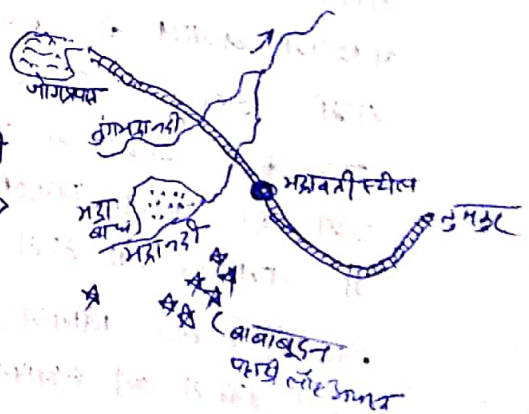 जोगप्रपात
तुंगभद्रा नदी
भद्रावती स्टील
तुमकुर
भद्रा
बांध
भद्रा नदी
बाबाबूदन
पहाड़ी लौह अयस्क